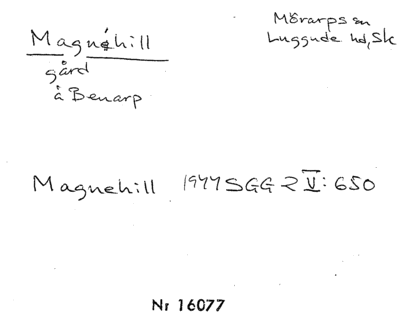 Magnéhill
gård
å Benarp
Mörarps sn
Luggude hd, Sk
Magnehill 1944 SGG 2 V: 650
Nr 16077